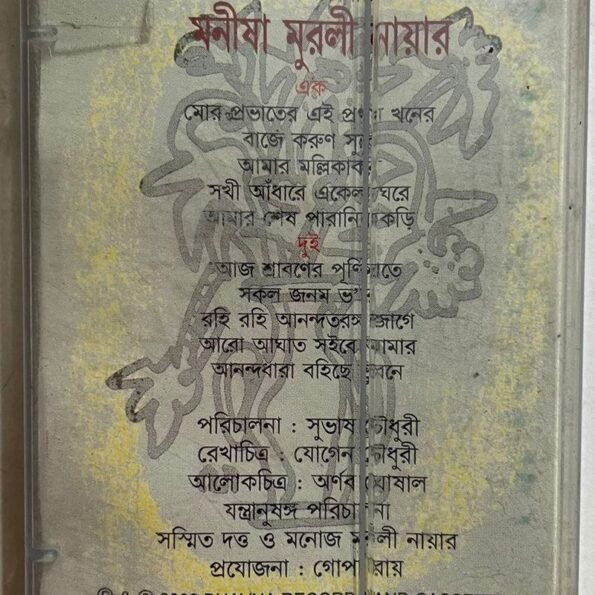 মনীষা মুরলী নায়ার
এক
মোর প্রভাতের এই প্রথম খনের
বাজে করুণ সুরে
আমার মল্লিকাবনে
সখী আঁধারে একেলা ঘরে
আমার শেষ পারানির কড়ি
দুই
আজ শ্রাবণের পূর্ণিমাতে
সকল জনম ভ'রে
রহি রহি আনন্দতরঙ্গ জাগে
আরো আঘাত সইবে আমার
আনন্দধারা বহিছে ভুবনে
পরিচালনা : সুভাষ চৌধুরী
রেখাচিত্র : যোগেন চৌধুরী
আলোকচিত্র : অর্ণব ঘোষাল
যন্ত্রানুষঙ্গ পরিচালনা
সস্মিত দত্ত ও মনোজ মুরলী নায়ার
প্রযোজনা : গোপাল রায়